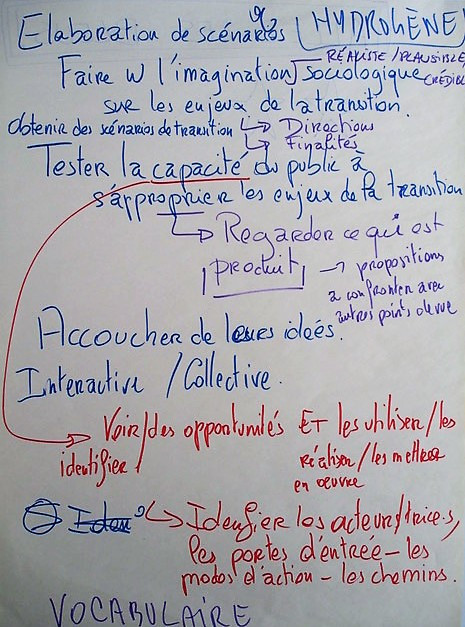 Elaboration de scénarios (HYDROGÈNE)
RÉALISTE / PLAUSIBLE / CRÉDIBLE
Faire W l'imagination sociologique
sur les enjeux de la transiton.
Obtenir des scénarios de transition → Directions
→ Finalités
Tester la capacité du public à
s'approprier les enjeux de la transition
→ Regarder ce qui est
produit → propositions
à confronter avec
autres points de vue
Accoucher de leurs ideés.
Interactive / Collective.
→ Voir/des opportunités ET les utiliser/les
identifier réaliser/les mettre
en oeuvre
→ Idenfier les acteurs/trice.s,
les portes d'entrée - les
modes d'action - les chemins.
VOCABULAIRE